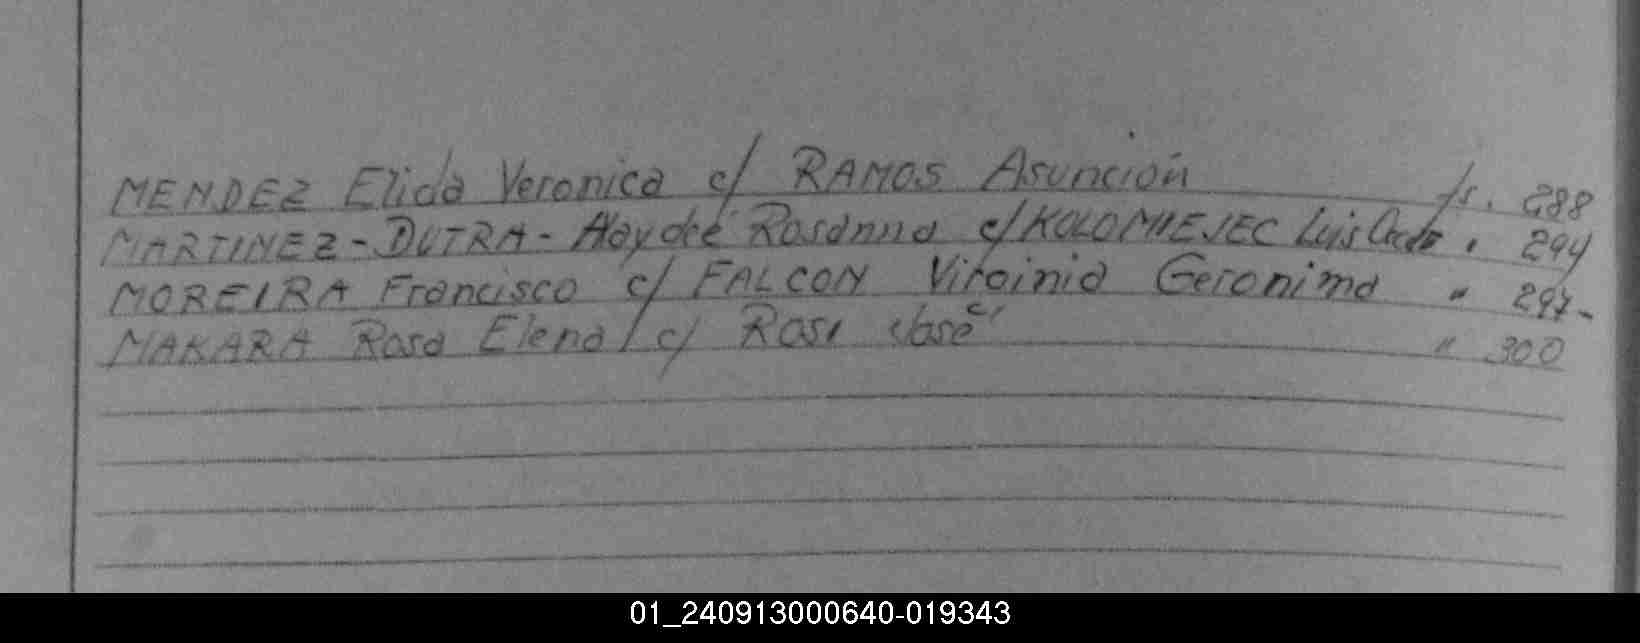 MENDEZ Elida Veronica c/ RAMOS Asunción fs. 288
MARTINEZ-DUTRA-Haydeé Rosanna c/ KOLOMIEJEC Luis " 294
MOREIRA Francisco c/ FALCON Virginia Geronima " 297-
MAKARA Rosa Elena c/ ROSI José " 300
01_240913000640-019343